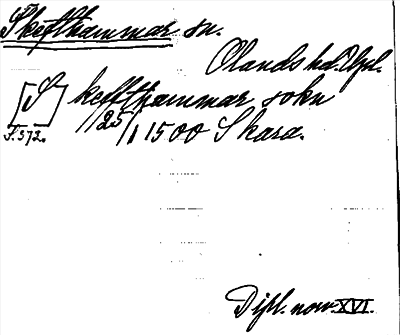 Skefthammar sn.
Olands hd. Upl.
[S]keffthammar sokn
S. 372.
25/1 1500 Skara.
Dipl. norv. XVI.